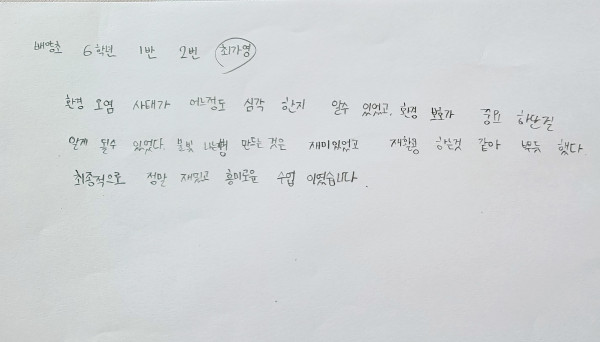 배양초 6학년 1반 2번 최가영
환경 오염 사태가 어느정도 심각 한지 알수 있었고, 환경 보호가 중요 하단걸
알게 될수 있었다. 만드는 것은 재미있었고 재활용 하는것 같아 뿌듯 했다
최종적으로 정말 재밌고 흥미로운 수업 이였습니다.